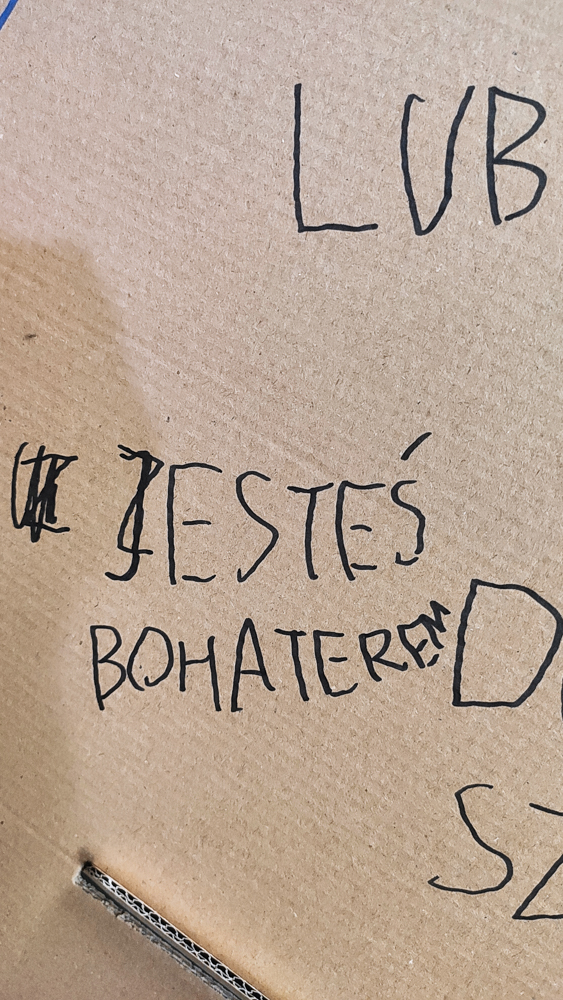 LUB
JESTEŚ
BOHATEREM
D
SZ